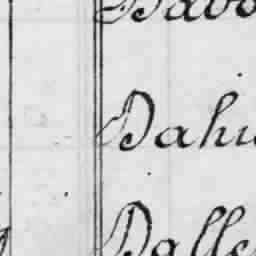 Dabo
Dahi
Dalle